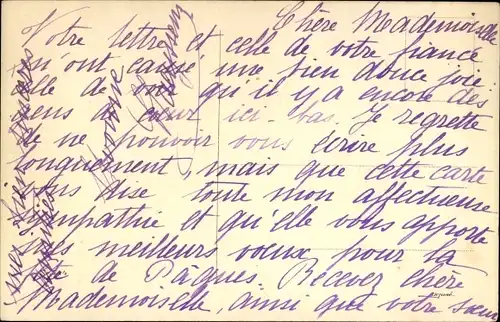 Chère Mademoiselle
Votre lettre et celle de votre fiancé
m'ont causé une bien douce joie:
celle de voir qu'il y a encore des
gens de cœur ici-bas. Je regrette
de ne pouvoir vous écrire plus
longuement, mais que cette carte
vous dise toute mon affectueuse
sympathie et qu'elle vous apporte
mes meilleurs vœux pour la
fête de Pâques. Recevez chère
Mademoiselle, ainsi que votre sœur